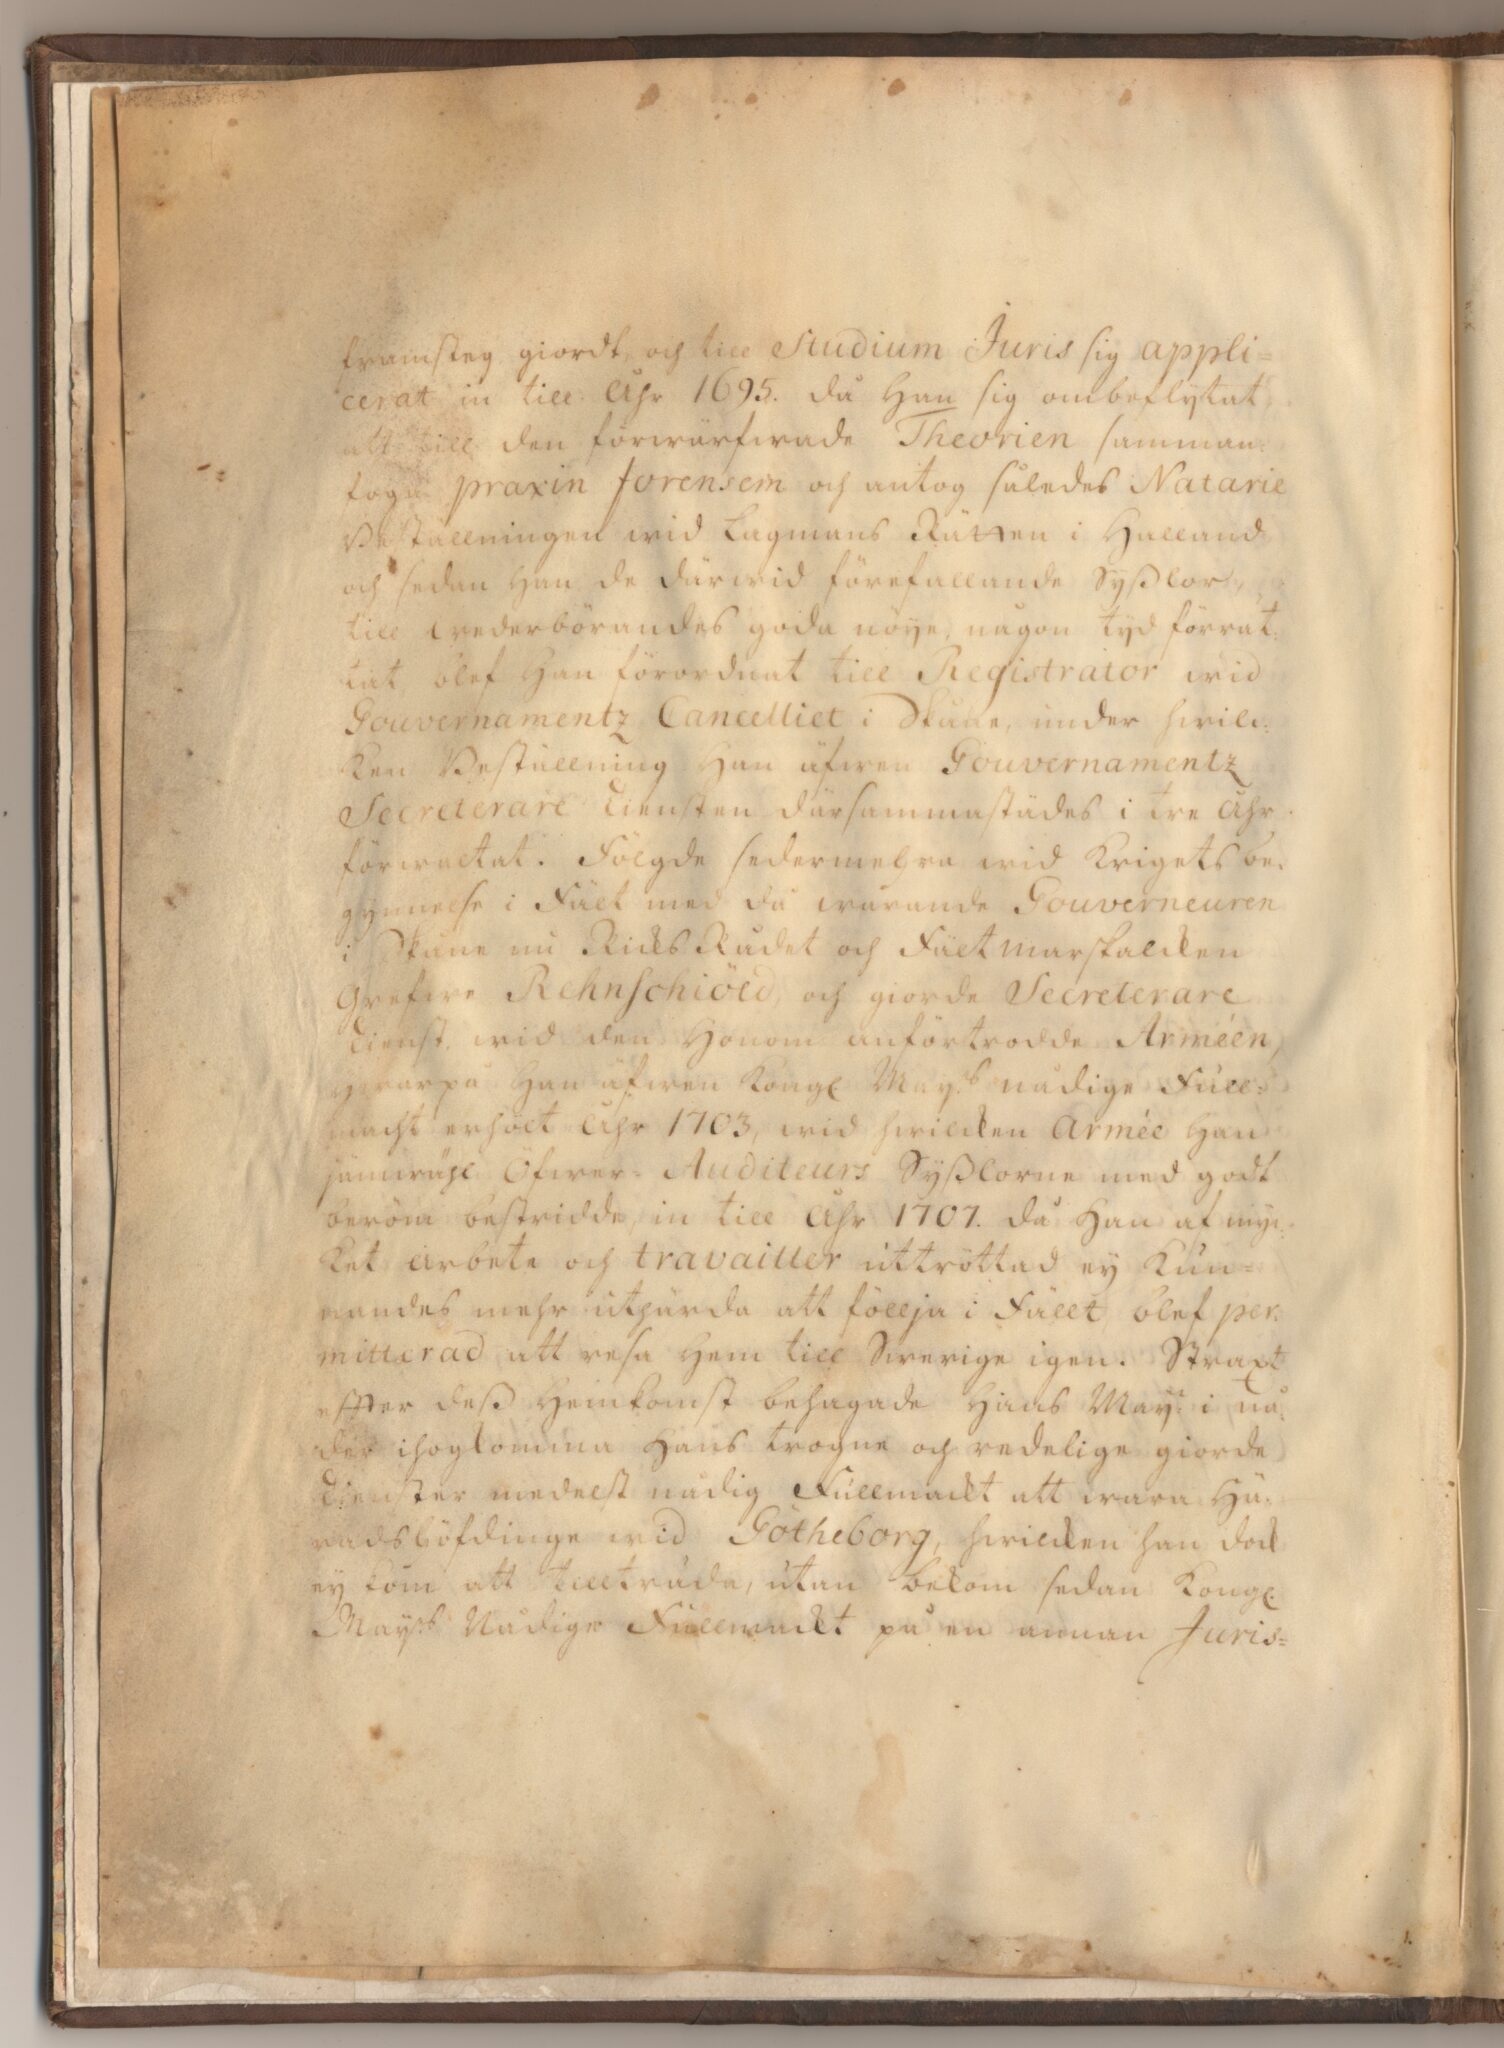 framsteg giordt, och till Studium Juris sig appli=
cerat in till Åhr 1695. då Han sig ombeflytat,
att till den förwärfwade Theorien samman=
foga praxin forensem och antog således Notarie
Beställningen wid Lagmans Rätten i Halland
och sedan Han de därwid förefallande Sysslor,
till wederbörandes goda nöye, någon tyd förrät=
tat blef Han förordnat till Registrator wid
Gouvernamentz Cancelliet i Skåne, under hwil=
ken Beställning Han äfwen Gouvernamentz
Secreterare Tiensten därsammastädes i tre Åhr
förwaltat. Fölgde sedermehra wid Krigets be=
gynnelse i Fält med då warande Gouverneuren
i Skåne nu Ricks Rådet och Fältmarskalcken
Grefwe Rehnschiöld, och giorde Secreterare
Tienst wid den Honom anförtrodde Arméen,
hwarpå Han äfwen Kongl May:ts nådige Full=
macht erhölt Åhr 1703, wid hwilcken Armée Han
jämwähl Öfwer=Auditeurs Sysslorne med godt
beröm bestridde, in till Åhr 1707. då Han af myc=
ket arbete och travailler uttröttad ey kun=
nandes mehr uthärda att föllja i Fällt, blef per=
mitterad att resa Hem till Swerige igen. Straxt
effter dess Hemkomst behagade Hans May:t i nå=
der ihogkomma Hans trogne och redelige giorde
Tienster medelst nådig Fullmackt att wara Hä=
radshöfdinge wid Götheborg, hwilcken han dock
ey kom att tillträda, utan bekom sedan Kongl.
May:ts Nådige Fullmackt på en annan Juris=